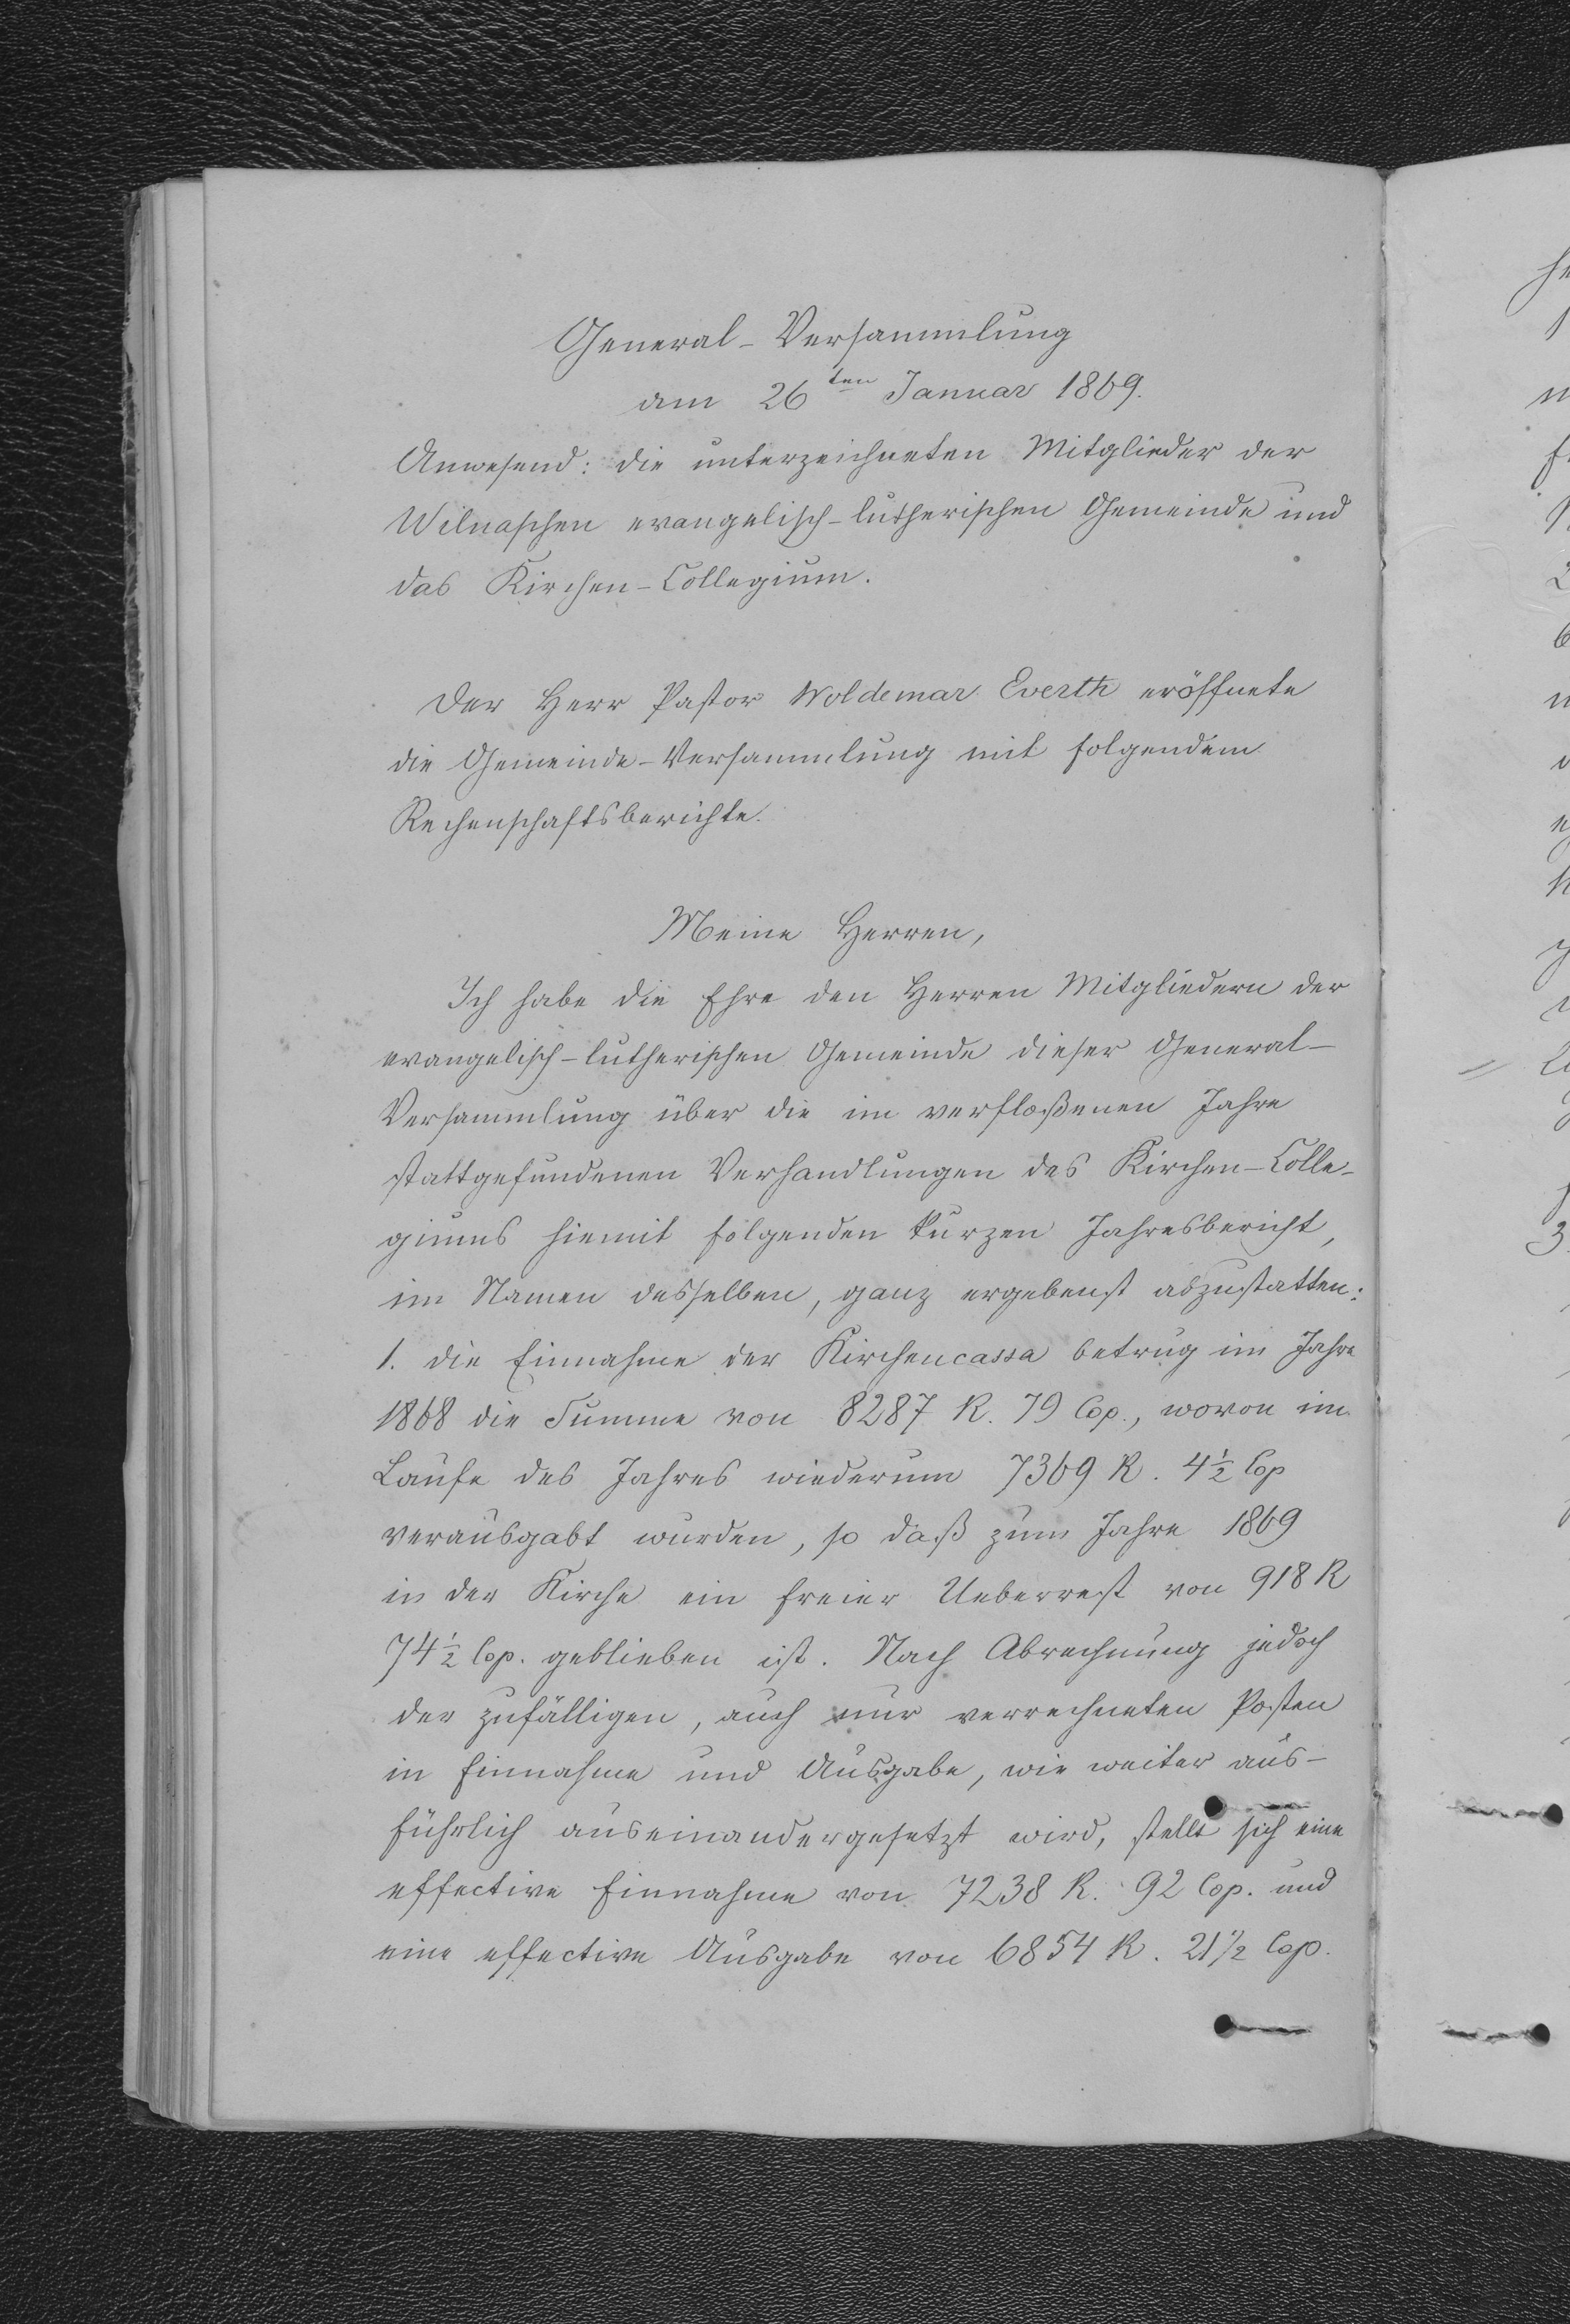 General-Versammlung
am 26ten Januar 1869.
Anwesend: die unterzeichneten Mitglieder der
Wilnaschen evangelisch-lutherischen Gemeinde und
das Kirchen-Collegium.
Der Herr Pastor Woldemar Everth eröffnete
die Gemeinde-Versammlung mit folgendem
Rechenschaftsberichte.
Meine Herren,
Ich habe die Ehre den Herren Mitgliedern der
evangelisch-lutherischen Gemeinde dieser General-
Versammlung über die im verfloßenen Jahre
stattgefundenen Verhandlungen des Kirchen-Colle-
giums hiemit folgenden kurzen Jahresbericht,
im Namen desselben, ganz ergebenst abzustatten:
1. die Einnahme der Kirchencassa betrug im Jahre
1868 die Summe von 8287 R. 79 Cop., wovon im
Laufe des Jahres wiederum 7369 R. 4½ Cop
verausgabt wurden, so daß zum Jahre 1869
in der Kirche ein freier Ueberrest von 918 R
74½ Cop. geblieben ist. Nach Abrechnung jedoch
der zufälligen, auch nur verrechneten Posten
in Einnahme und Ausgabe, wie weiter aus-
führlich auseinandergesetzt wird, stellt sich eine
effective Einnahme von 7238 R. 92 Cop. und
eine effective Ausgabe von 6854 R. 21½ Cop.